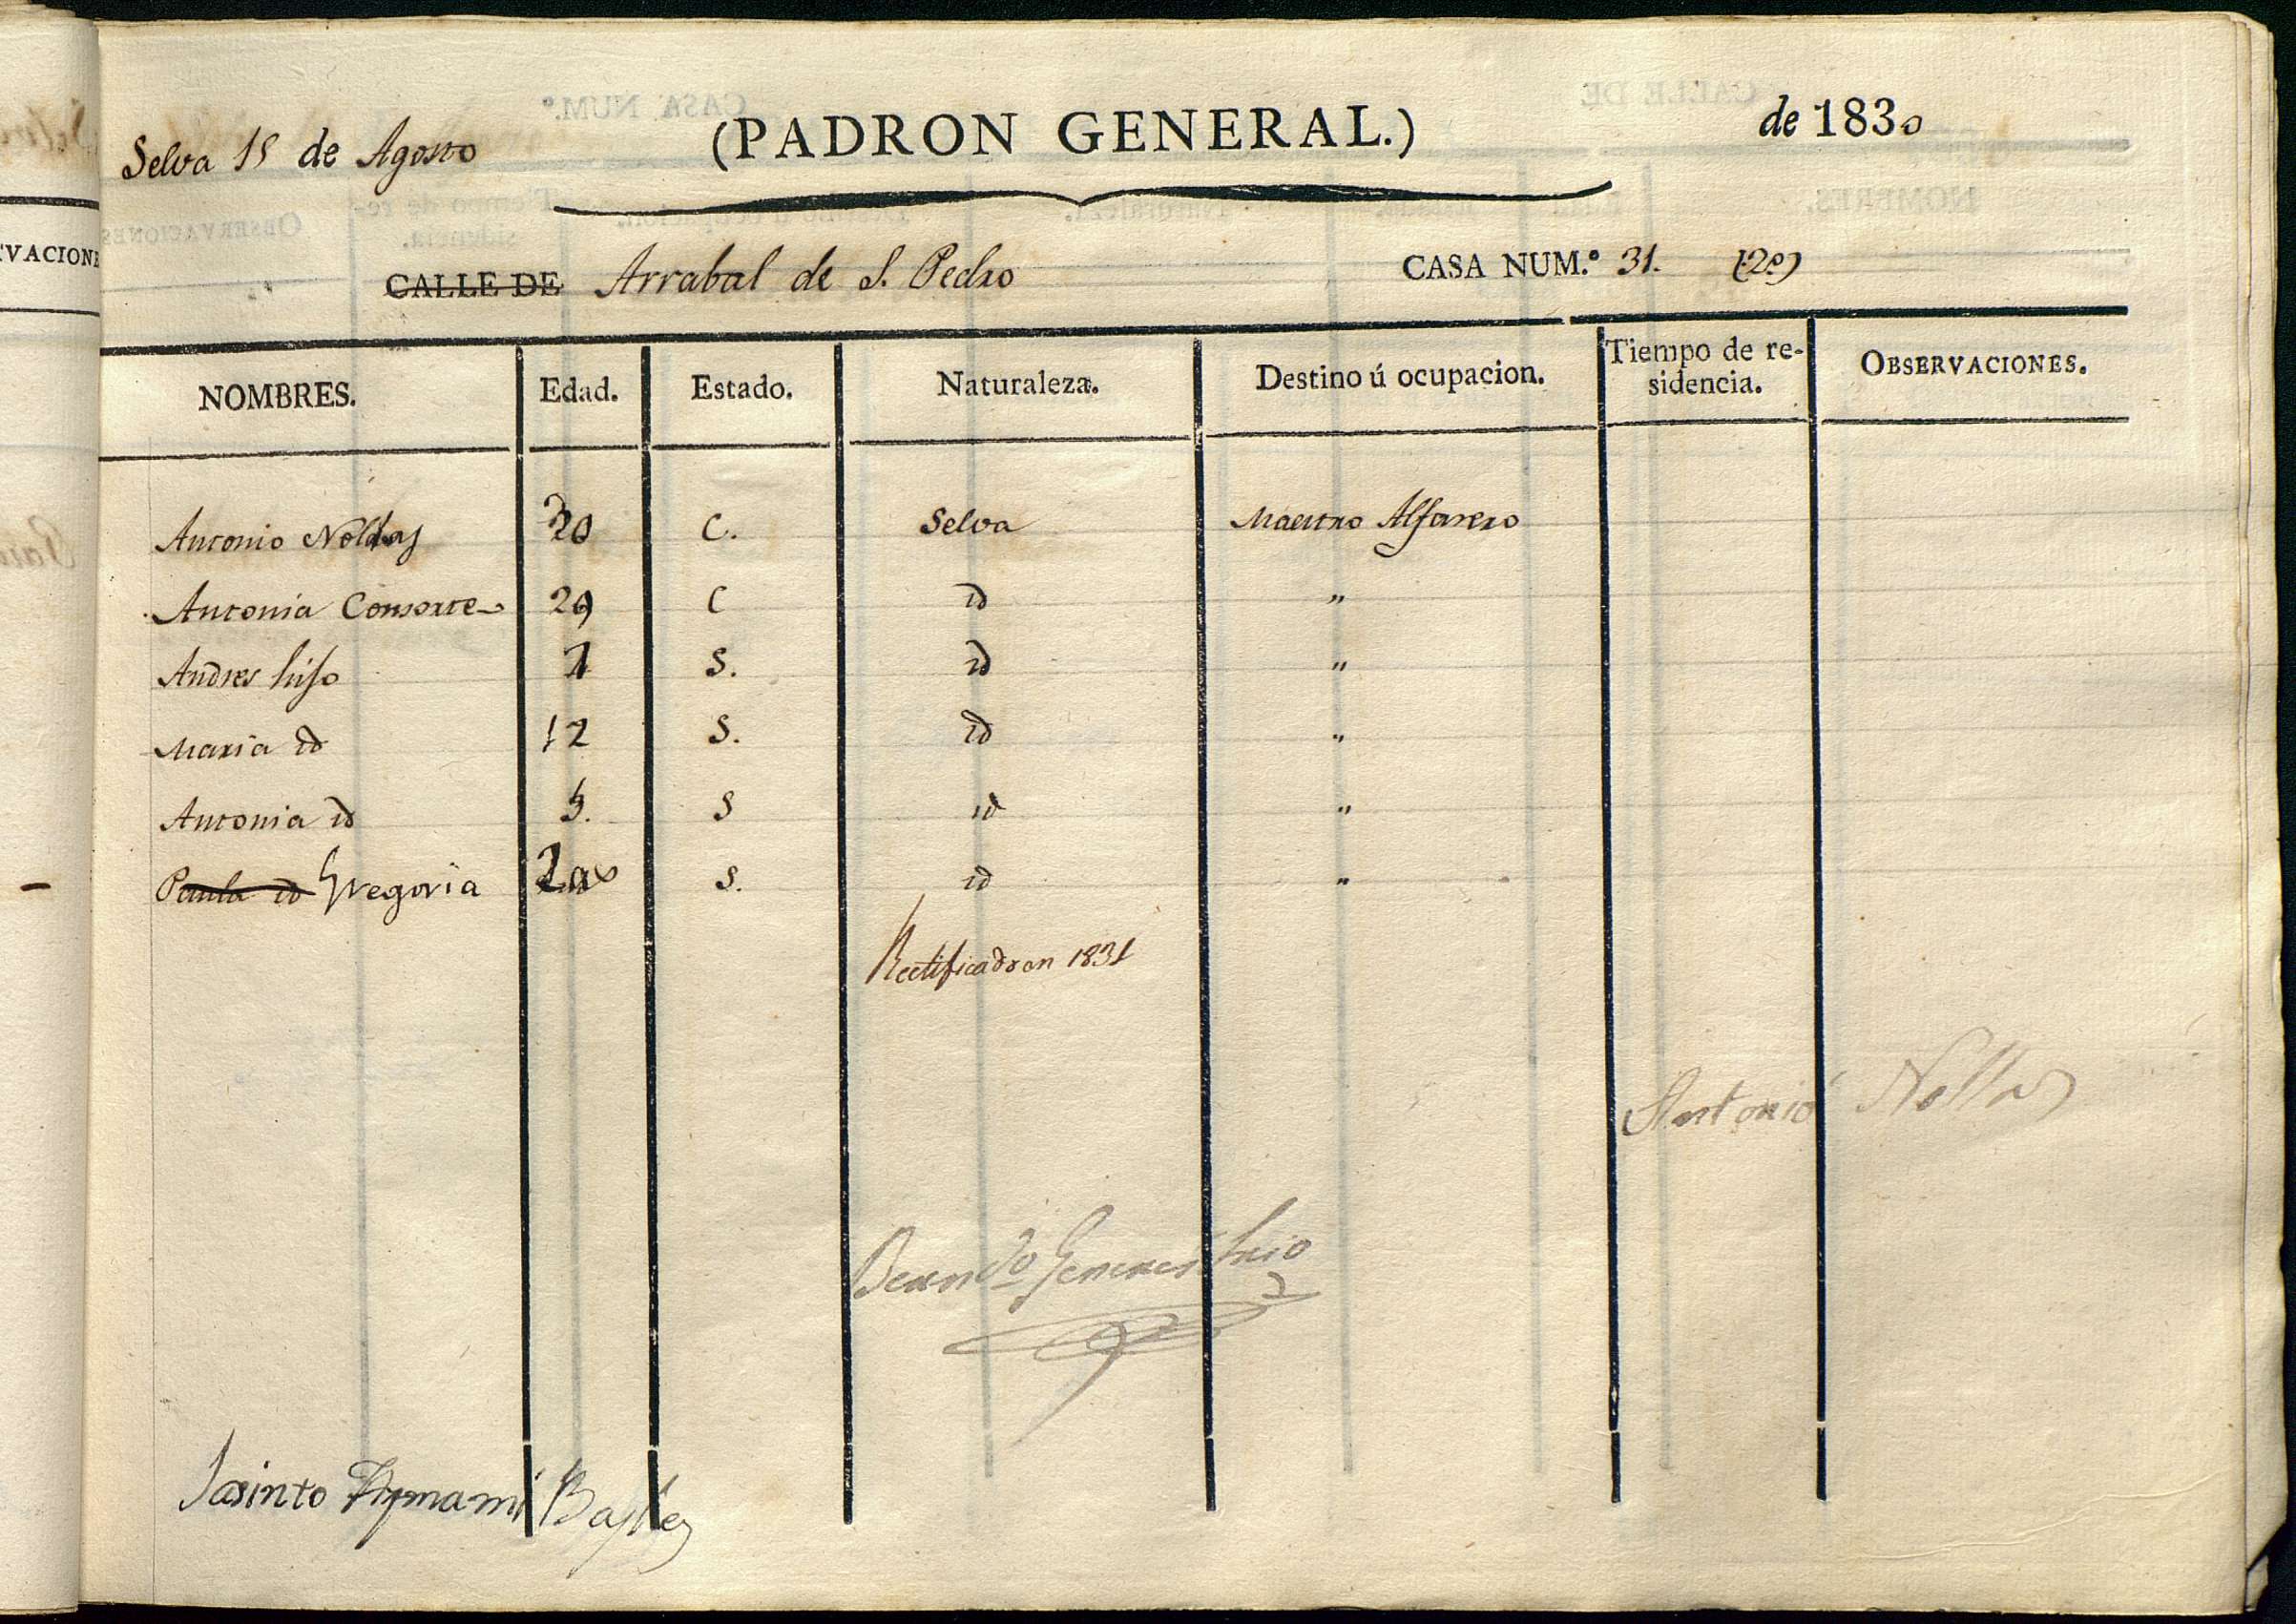 Selva 15 de Agosto (PADRON GENERAL.) de 1830
CALLE DE Arrabal de S. Pedro CASA NUM.º 31. (2º)
VACIONE
NOMBRES. Edad. Estado. Naturaleza. Destino ú ocupacion. Tiempo de re-sidencia. OBSERVACIONES.
Antonio Nollas 30 C. Selva Maestro Alfarero
Antonia Consorte 29 C id "
Andres hijo S. id "
Maria id 12 S. id "
Antonia id S id "
Paula id Gregoria S. id "
Rectificado en 1831
Antonio Nollas
Jasinto Bayle